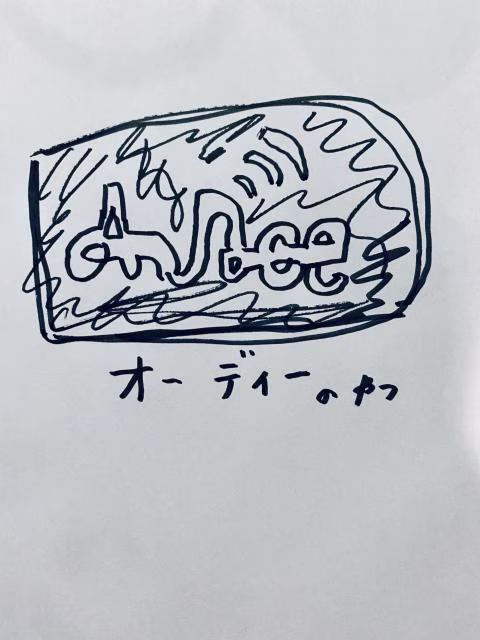 オーディーのやつ